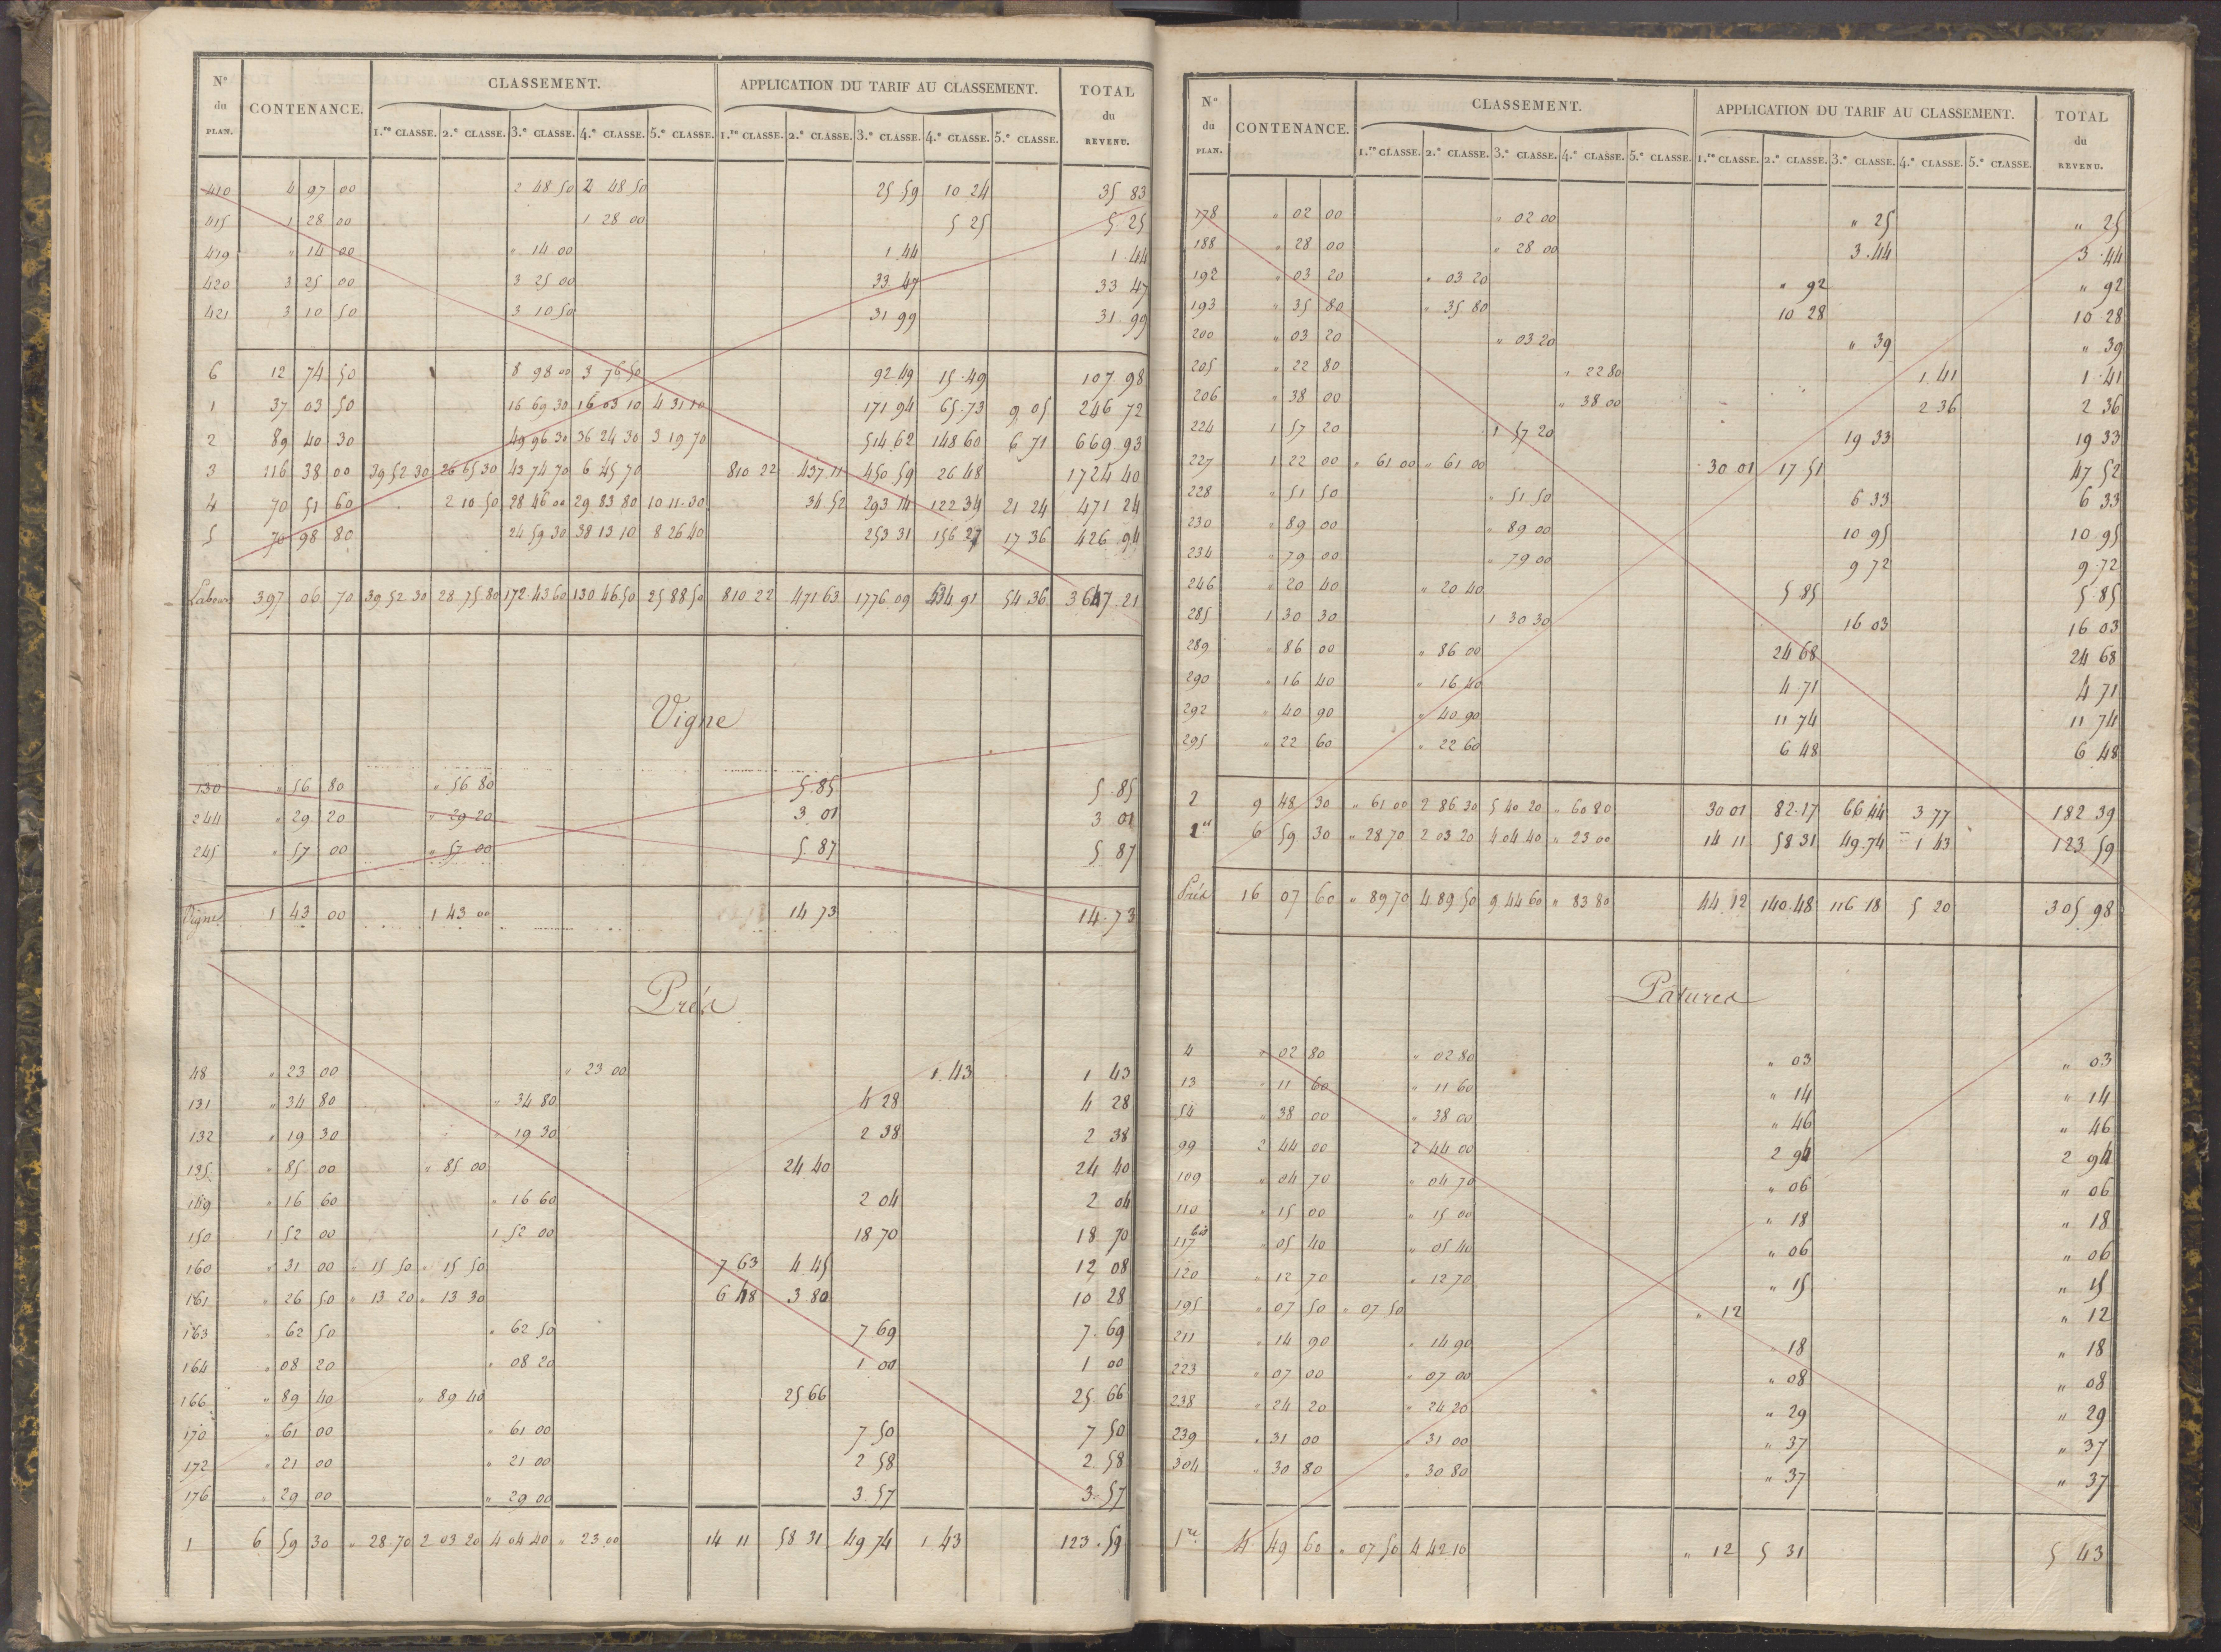 N° du PLAN. CONTENANCE. CLASSEMENT. APPLICATION DU TARIF AU CLASSEMENT. TOTAL du REVENU.
1.re CLASSE. 2.e CLASSE. 3.e CLASSE. 4.e CLASSE. 5.e CLASSE. 1.re CLASSE. 2.e CLASSE. 3.e CLASSE. 4.e CLASSE. 5.e CLASSE.
410 4 97 00 2 48 50 2 48 50 25 59 10 24 35 83
415 1 28 00 1 28 00 5 25 5 25
419 " 14 00 " 14 00 1 44 1 44
420 3 25 00 3 25 00 33 47 33 47
421 3 10 50 3 10 50 31 99 31 99
6 12 74 50 8 98 00 3 76 50 92 49 15 49 107 98
1 37 03 50 16 69 30 16 03 10 4 31 10 171 94 65 73 9 05 246 72
2 89 40 30 49 96 30 36 24 30 3 19 70 514 62 148 60 6 71 669 93
3 116 38 00 39 52 30 26 65 30 43 74 70 6 45 70 810 22 437 11 450 59 26 48 1724 40
4 70 51 60 2 10 50 28 46 00 29 83 80 10 11 30 34 52 293 14 122 34 21 24 471 24
5 70 98 80 24 59 30 38 13 10 8 26 40 253 31 156 27 17 36 426 94
Labour 397 06 70 39 52 30 28 75 80 172 43 60 130 46 50 25 88 50 810 22 471 63 1776 09 534 91 54 36 3647 21
Vigne
130 " 56 80 " 56 80 5 85 5 85
244 " 29 20 " 29 20 3 01 3 01
245 " 57 00 " 57 00 5 87 5 87
Vigne 1 43 00 1 43 00 14 73 14 73
Prés
48 " 23 00 " 23 00 1 43 1 43
131 " 34 80 " 34 80 4 28 4 28
132 " 19 30 " 19 30 2 38 2 38
135 " 85 00 " 85 00 24 40 24 40
149 " 16 60 " 16 60 2 04 2 04
150 1 52 00 1 52 00 18 70 18 70
160 " 31 00 " 15 50 " 15 50 7 63 4 45 12 08
161 " 26 50 " 13 20 " 13 30 6 48 3 80 10 28
163 " 62 50 " 62 50 7 69 7 69
164 " 08 20 " 08 20 1 00 1 00
166 " 89 40 " 89 40 25 66 25 66
170 " 61 00 " 61 00 7 50 7 50
172 " 21 00 " 21 00 2 58 2 58
176 " 29 00 " 29 00 3 57 3 57
1 6 59 30 " 28 70 2 03 20 4 04 40 " 23 00 14 11 58 31 49 74 1 43 123 59
N° du PLAN. CONTENANCE. CLASSEMENT. APPLICATION DU TARIF AU CLASSEMENT. TOTAL du REVENU.
1.re CLASSE. 2.e CLASSE. 3.e CLASSE. 4.e CLASSE. 5.e CLASSE. 1.re CLASSE. 2.e CLASSE. 3.e CLASSE. 4.e CLASSE. 5.e CLASSE.
178 " 02 00 " 02 00 " 25 " 25
188 " 28 00 " 28 00 3 44 3 44
192 " 03 20 " 03 20 " 92 " 92
193 " 35 80 " 35 80 10 28 10 28
200 " 03 20 " 03 20 " 39 " 39
205 " 22 80 " 22 80 1 41 1 41
206 " 38 00 " 38 00 2 36 2 36
224 1 57 20 1 57 20 19 33 19 33
227 1 22 00 " 61 00 " 61 00 30 01 17 51 47 52
228 " 51 50 " 51 50 6 33 6 33
230 " 89 00 " 89 00 10 95 10 95
234 " 79 00 " 79 00 9 72 9 72
246 " 20 40 " 20 40 5 85 5 85
285 1 30 30 1 30 30 16 03 16 03
289 " 86 00 " 86 00 24 68 24 68
290 " 16 40 " 16 40 4 71 4 71
292 " 40 90 " 40 90 11 74 11 74
295 " 22 60 " 22 60 6 48 6 48
2 9 48 30 " 61 00 2 86 30 5 40 20 " 60 80 30 01 82 17 66 44 3 77 182 39
1 6 59 30 " 28 70 2 03 20 4 04 40 " 23 00 14 11 58 31 49 74 1 43 123 59
Prés 16 07 60 " 89 70 4 89 50 9 44 60 " 83 80 44 12 140 48 116 18 5 20 305 98
Patures
4 " 02 80 " 02 80 " 03 " 03
13 " 11 60 " 11 60 " 14 " 14
54 " 38 00 " 38 00 " 46 " 46
99 2 44 00 2 44 00 2 94 2 94
109 " 04 70 " 04 70 " 06 " 06
110 " 15 00 " 15 00 " 18 " 18
117 bis " 05 40 " 05 40 " 06 " 06
120 " 12 70 " 12 70 " 15 " 15
195 " 07 50 " 07 50 " 12 " 12
211 " 14 90 " 14 90 " 18 " 18
223 " 07 00 " 07 00 " 08 " 08
238 " 24 20 " 24 20 " 29 " 29
239 " 31 00 " 31 00 " 37 " 37
304 " 30 80 " 30 80 " 37 " 37
1re 4 49 60 " 07 50 4 42 10 " 12 5 31 5 43